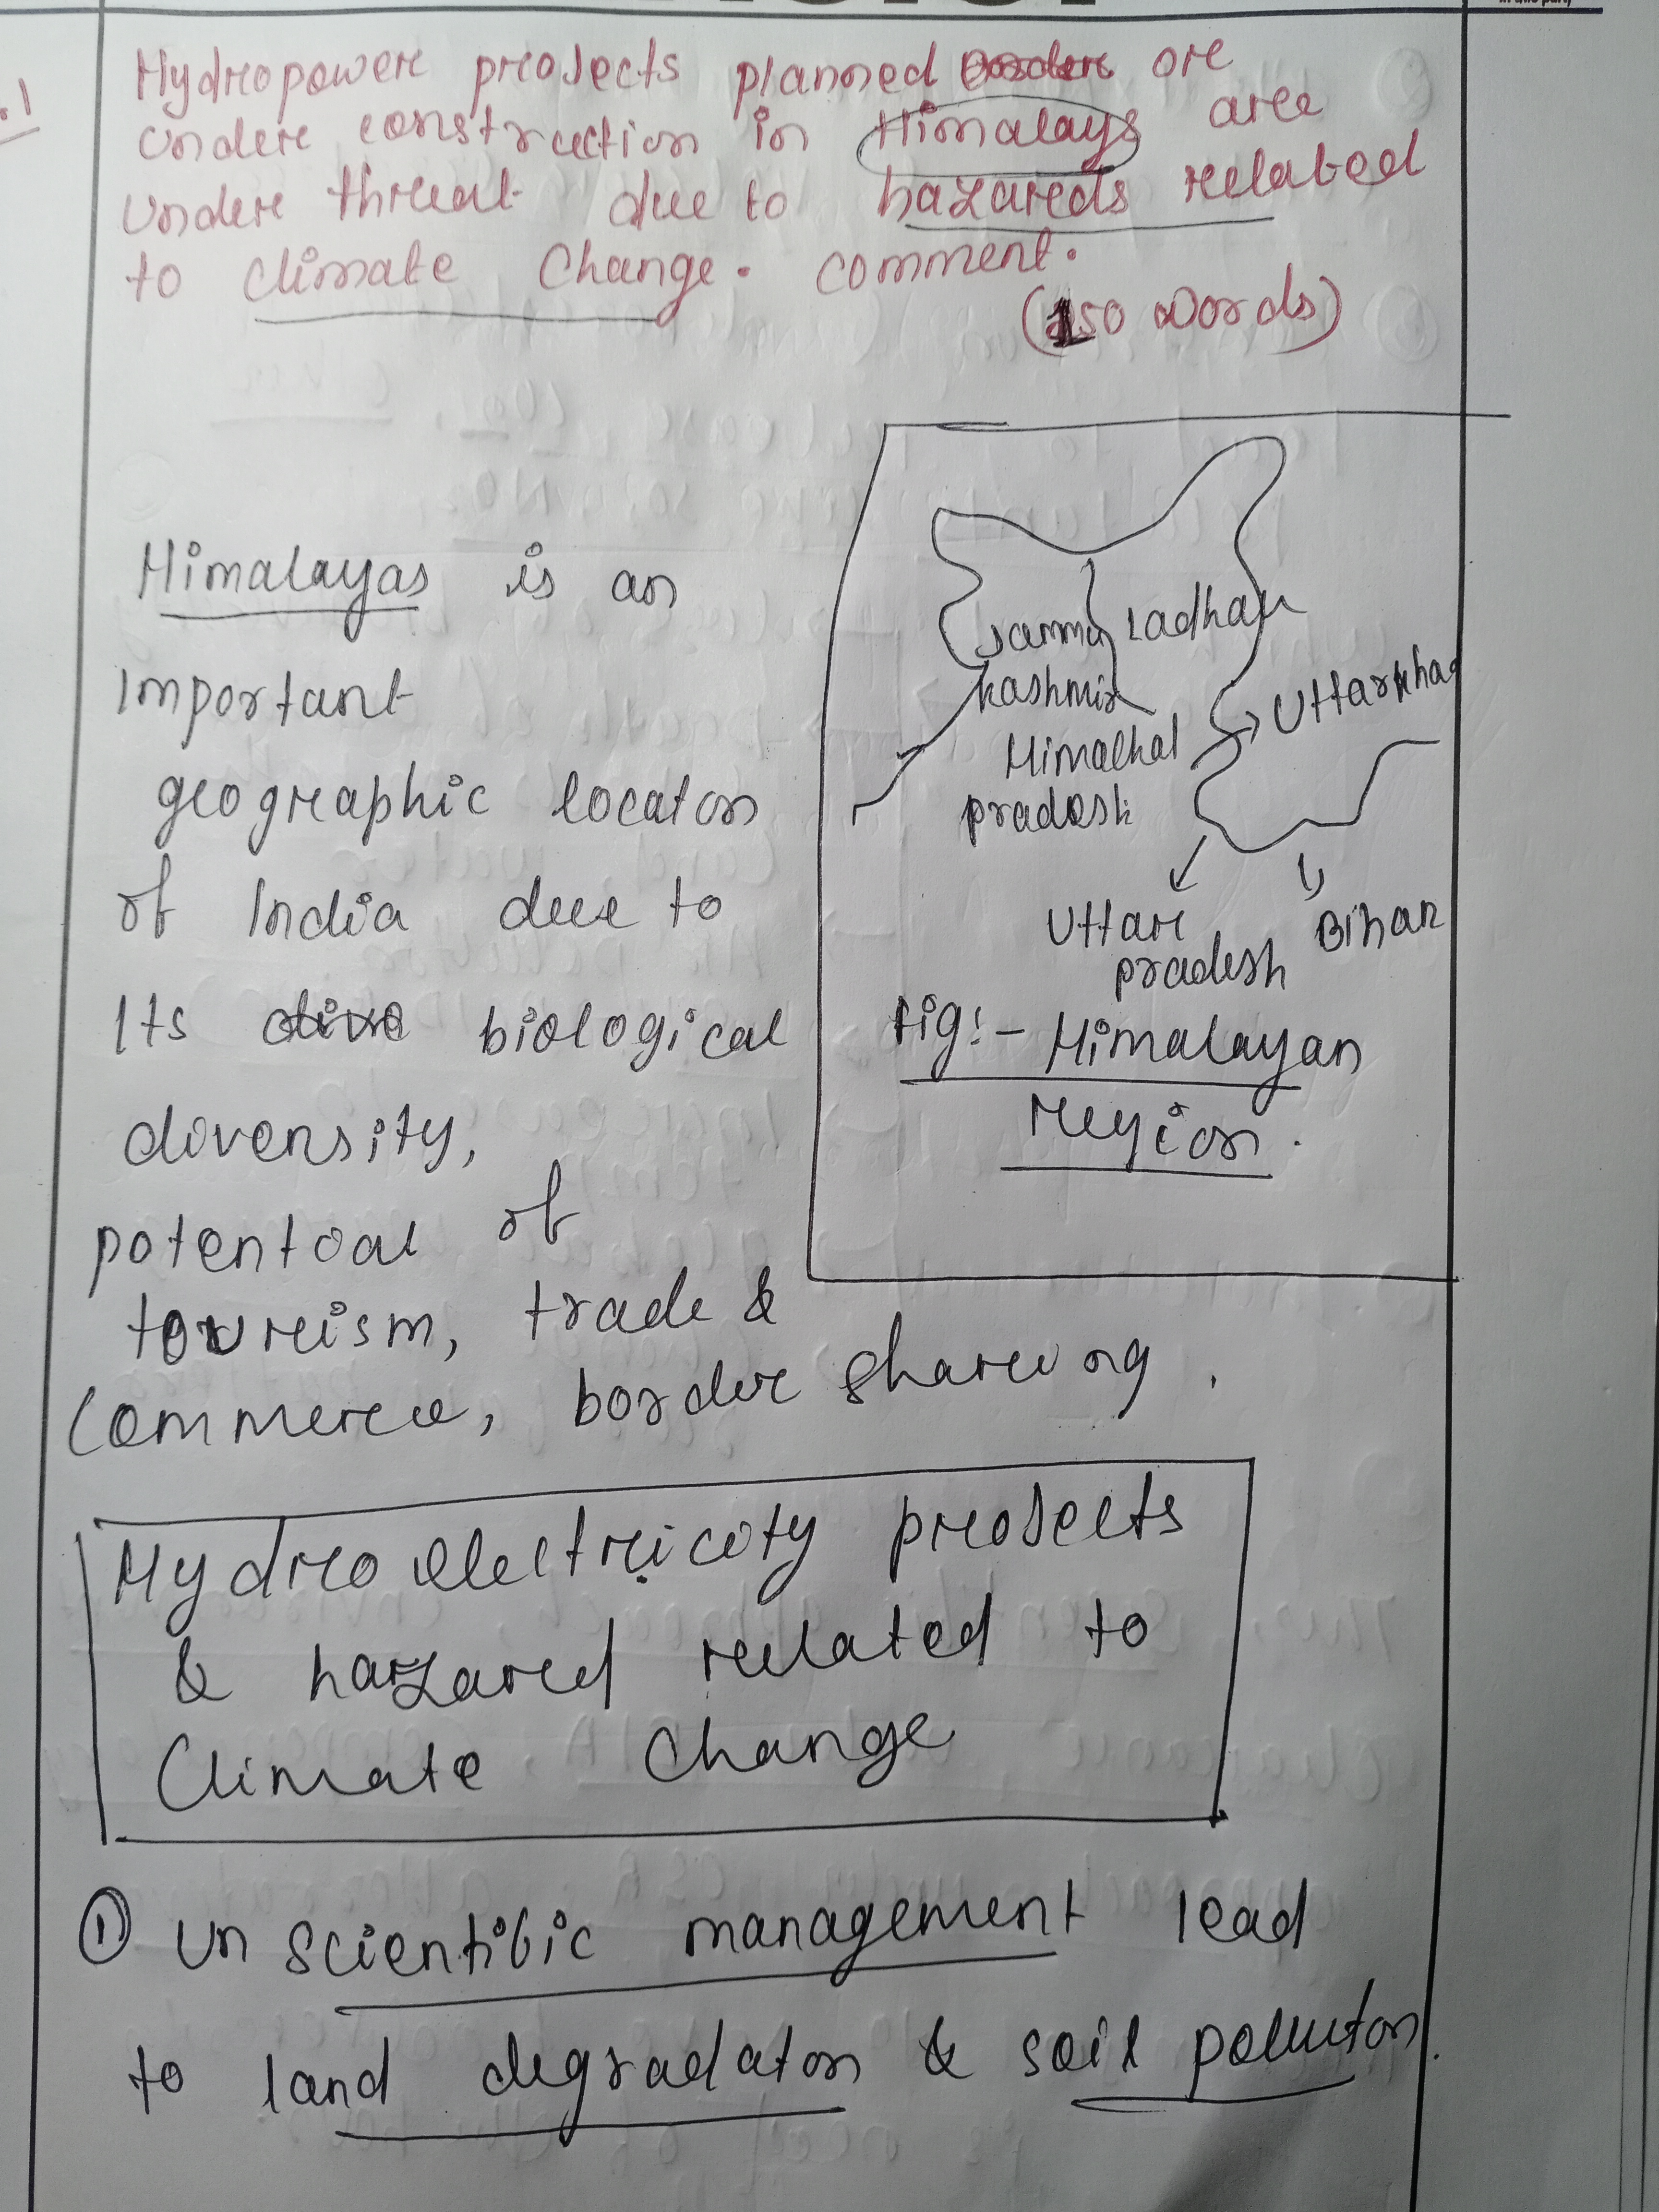 .1
Hydropower projects planned or
under construction in Himalays are
under threat due to hazareds related
to climate change. comment.
(150 words)
Himalayas is an
Important
geographic locaton
of India due to
Its biological
diversity,
potential of
tourism, trade &
commerce, border sharing.
Jammu
kashmir
Ladhak
Himalhal
pradesh
Uttarkha
Uttar
pradesh
Bihar
Fig:- Himalayan
Region.
Hydroelectricity projects
& hazared related to
Climate Change
① Unscientific management lead
to land degradaton & soil polluton.